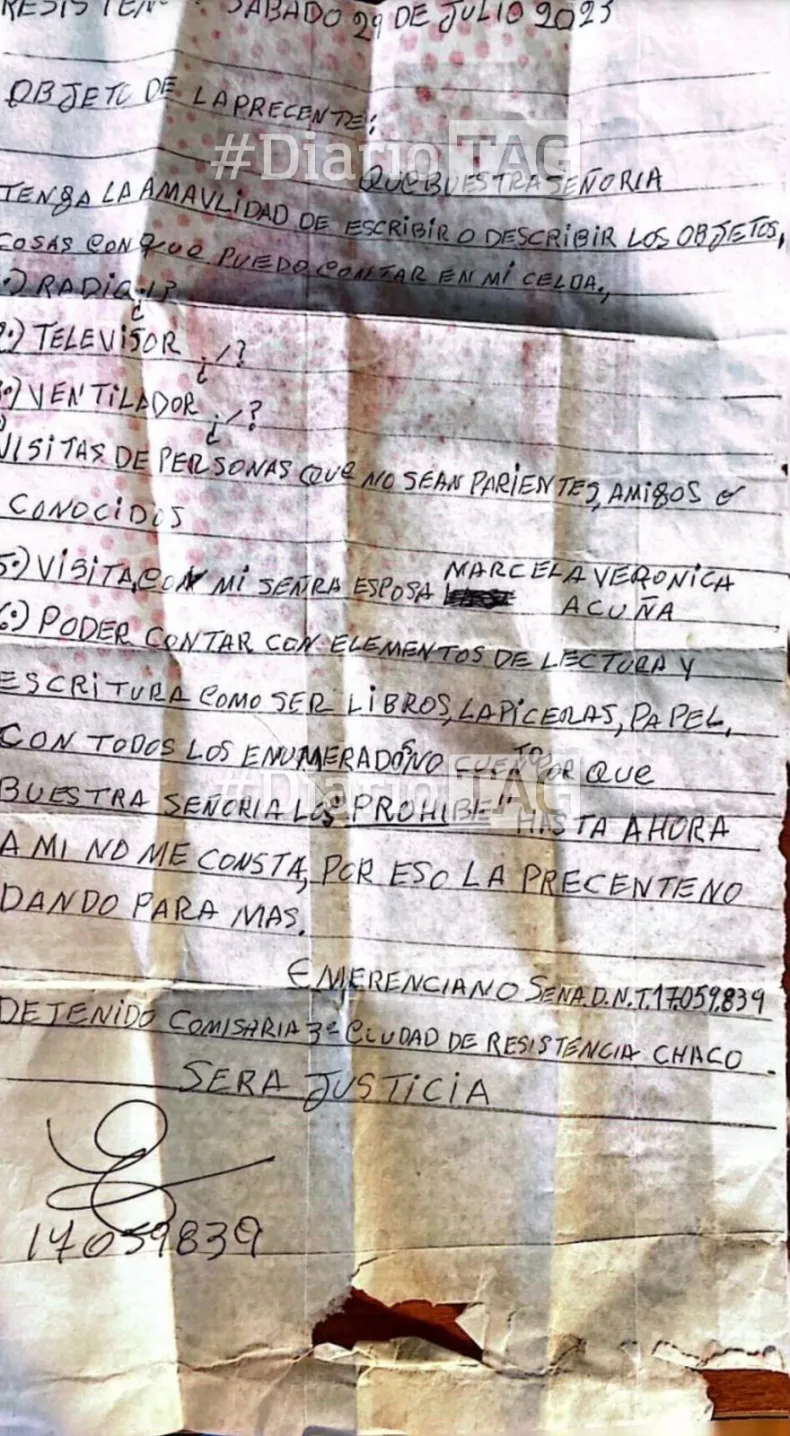 RESISTEN SABADO 29 DE JULIO 2023
OBJETO DE LA PRECENTE:
#DiarioTAG
QUE BUESTRA SEÑORIA
TENGA LA AMAVLIDAD DE ESCRIBIR O DESCRIBIR LOS OBJETOS,
COSAS CON QUE PUEDO CONTAR EN MI CELDA.,
.) RADIO ¿/?
2.) TELEVISOR ¿/?
3.) VENTILADOR ¿/?
VISITAS DE PERSONAS QUE NO SEAN PARIENTES, AMIGOS O
CONOCIDOS
5.) VISITA, CON MI SEÑRA ESPOSA MARCELA VERONICA
ACUÑA
6.) PODER CONTAR CON ELEMENTOS DE LECTURA Y
ESCRITURA COMO SER LIBROS, LAPICERAS, PAPEL,
CON TODOS LOS ENUMERADOS NO CUENTO POR QUE
#DiarioTAG
BUESTRA SEÑORIA LOS "PROHIBE" HASTA AHORA
A MI NO ME CONSTA, POR ESO LA PRECENTE NO
DANDO PARA MAS.
EMERENCIANO SENA. D.N.I. 17.059.839
DETENIDO COMISARIA 3º CIUDAD DE RESISTENCIA CHACO.
SERA JUSTICIA
17059839